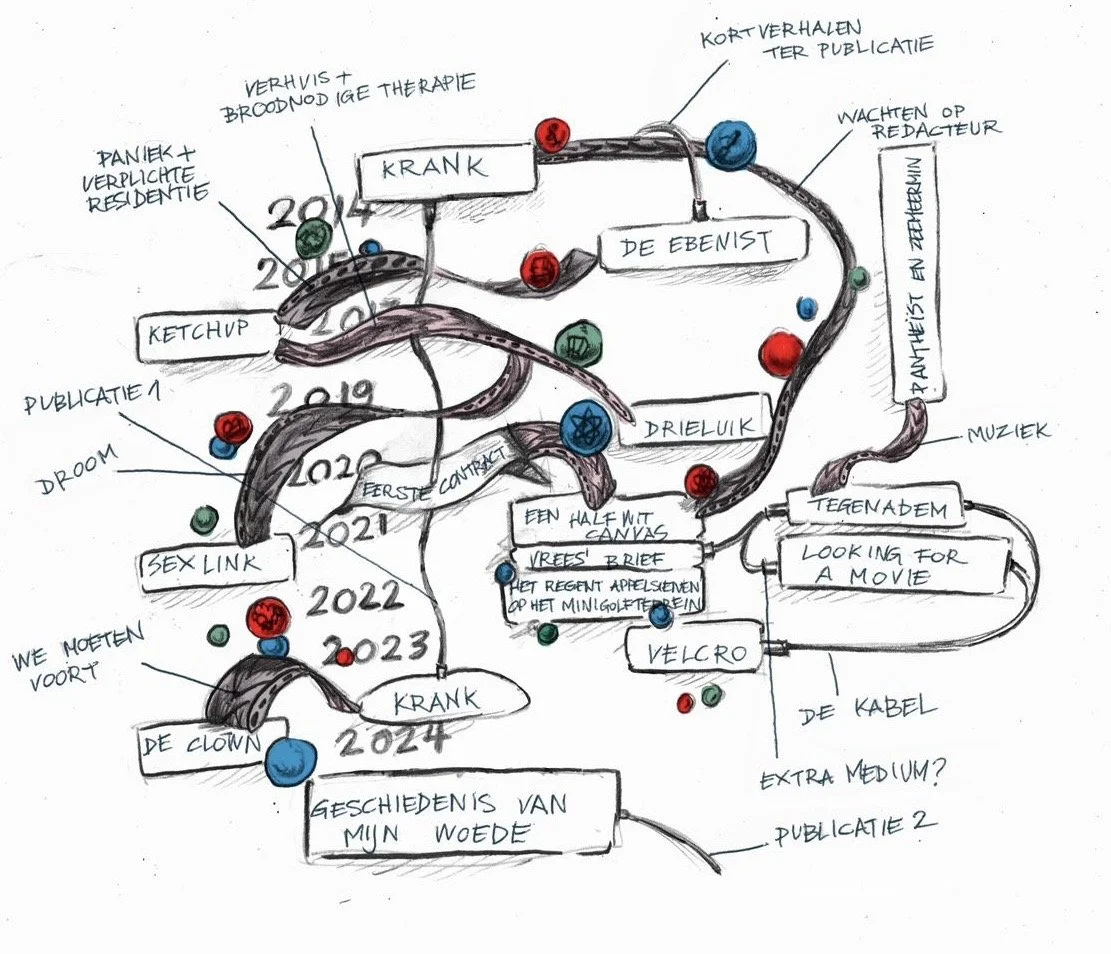 KORTVERHALEN
TER PUBLICATIE
VERHUIS +
BROODNODIGE THERAPIE
WACHTEN OP
REDACTEUR
PANIEK +
VERPLICHTE
RESIDENTIE
KRANK
2014
DE EBENIST
PANTHEÏST EN ZEEMEERMIN
2015
KETCHUP
PUBLICATIE 1
2019
DRIELUIK
MUZIEK
DROOM
2020
EERSTE CONTRACT
TEGENADEM
2021
EEN HALF WIT
CANVAS
VREES' BRIEF
HET REGENT APPELSIENEN
OP HET MINIGOLFTERREIN
LOOKING FOR
A MOVIE
SEX LINK
2022
2023
VELCRO
WE MOETEN
VOORT
KRANK
DE KABEL
DE CLOWN
2024
EXTRA MEDIUM?
GESCHIEDENIS VAN
MIJN WOEDE
PUBLICATIE 2